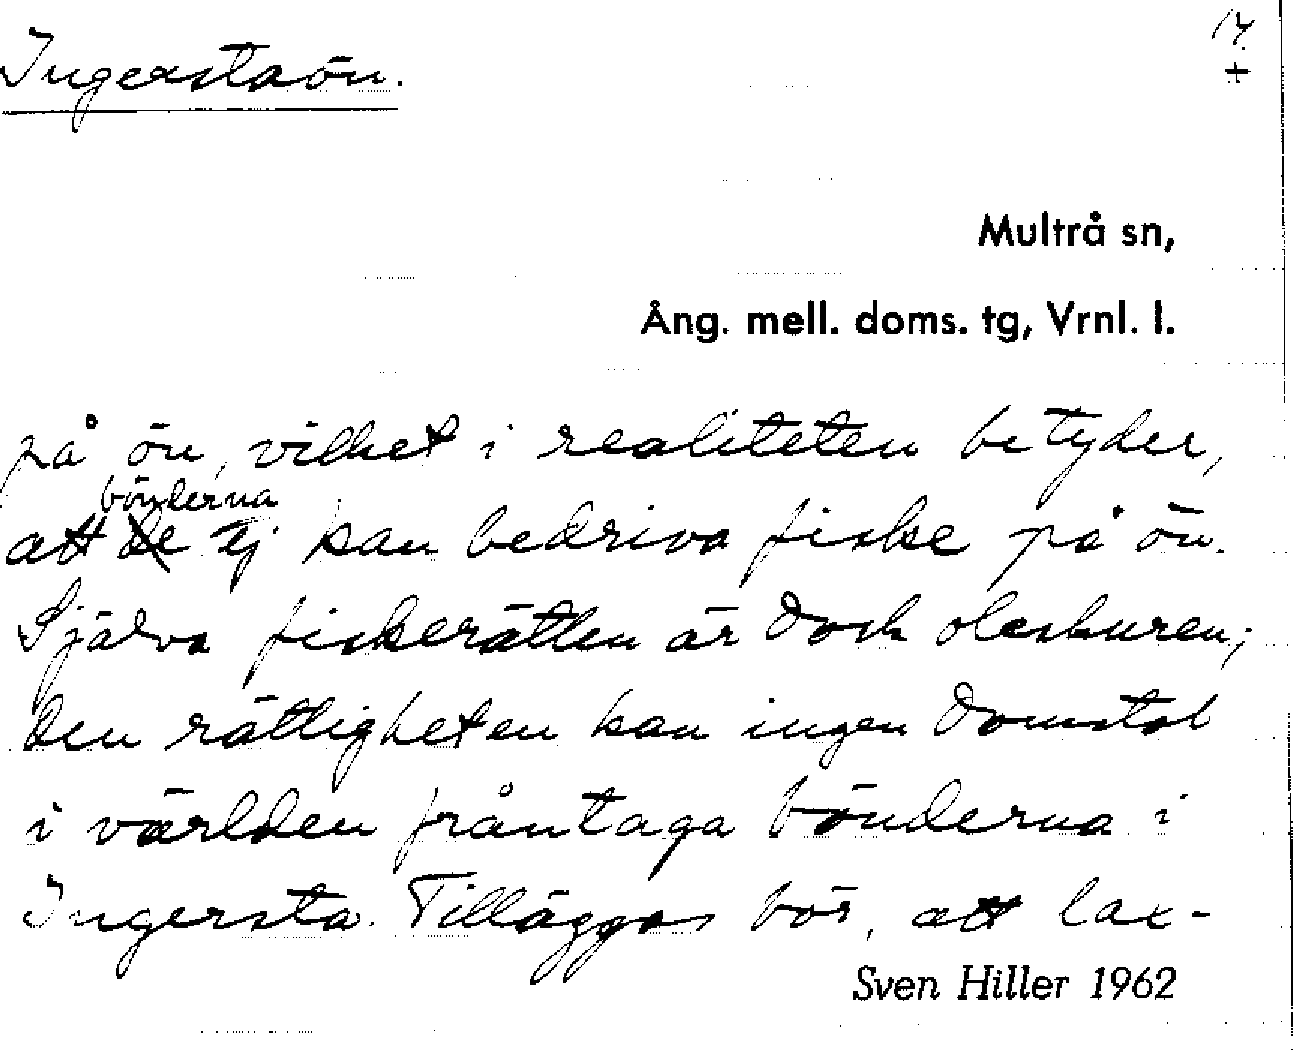 Ingerstaön.
14.
+
Multrå sn,
Ång. mell. doms. tg, Vrnl. l.
på ön, vilket i realiteten betyder,
bönderna
att de ej kan bedriva fiske på ön.
Själva fiskerätten är dock oleskuren;
den rättigheten kan ingen domstol
i världen fråntaga bönderna i
Ingersta. Tilläggas bör, att lax-
Sven Hiller 1962